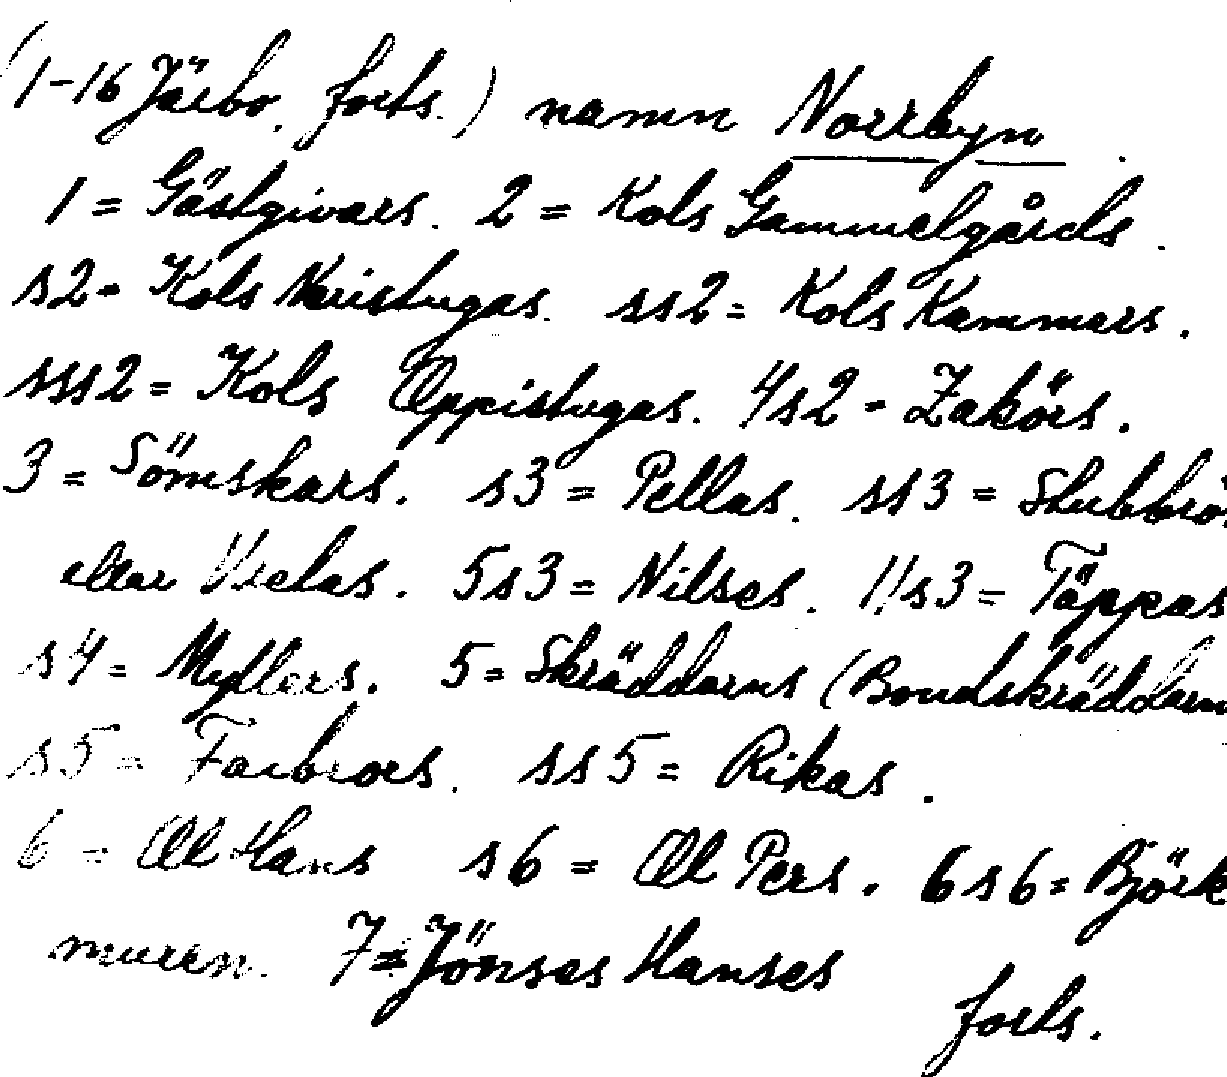 (1-16 Järbo, forts.) namn Norrbyn.
1 = Gästgivars. 2 = Kols Gammelgårds.
s2 - Kols Neristugas. ss2 = Kols Kammars.
sss2 = Kols Oppistugas. 4s2 - Zakörs.
3 = Sömskars. s3 = Pellas. ss3 =
eller 5s3 = Nilses. 11s3 = Täppas
s4 = Myllers. 5 = Skräddarns (Bondskräddarn
s5 = Farbrors. ss5 = Rikas.
6 = Ol Hans s6 = Ol Pers. 6s6 = Björk
muren. 7 = Jönses Hanses
forts.